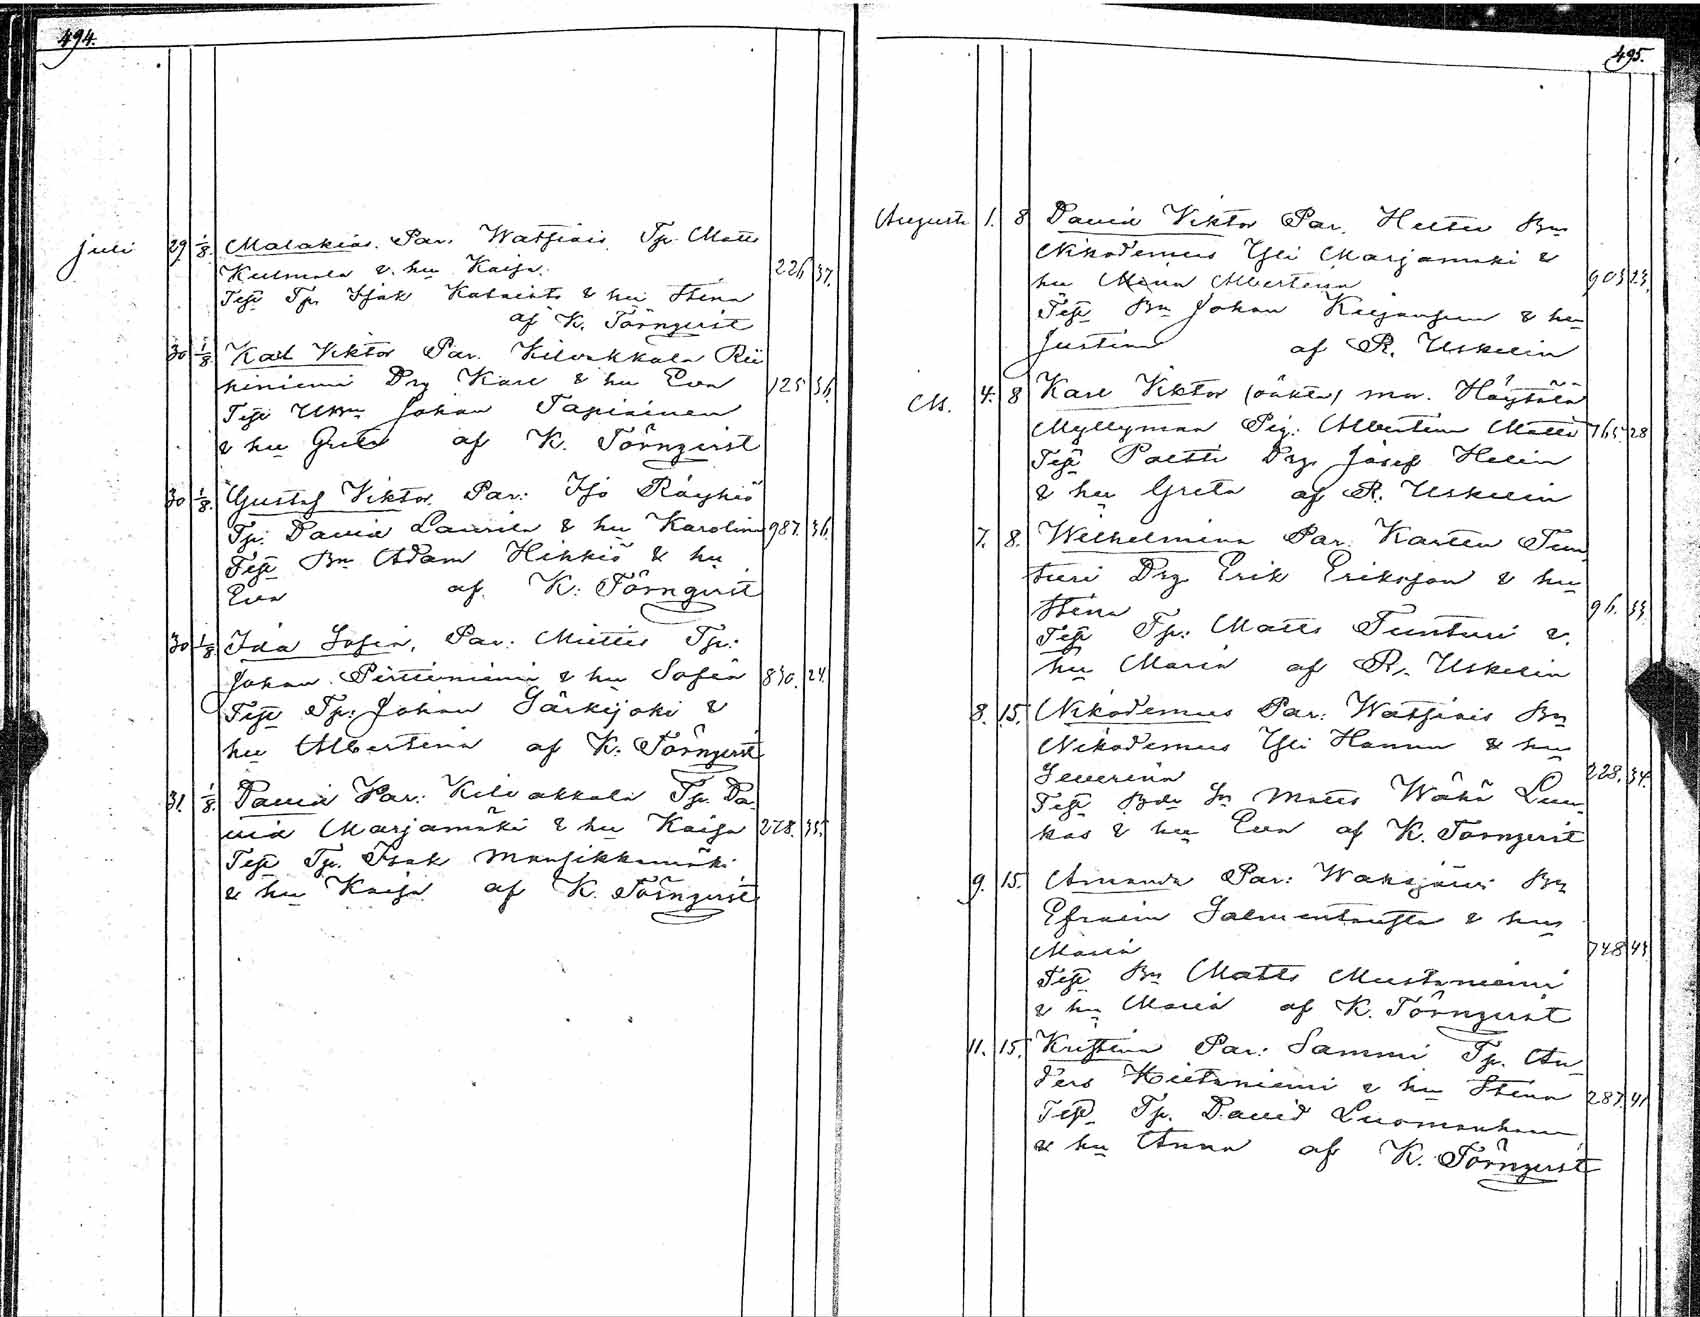 494.
Juli 29 1/8 Malakias. Par. Watjiais Tp. Matts
Kulmala & hu Kaisa. 226 37.
Test Tp. Isak & hu Stina
af K. Törnqvist
30 1/8 Karl Viktor Par. Kilvakkala Rii
niemi Drg Karl & hu Eva 125 36.
Test Johan Tapiainen
& hu Greta af K. Törnqvist
30 1/8 Gustaf Viktor. Par: Iso Röyhiö
Tp: David Laurila & hu Karolina 987. 36.
Test Bn Adam Heikkiö & hu
Eva af K. Törnqvist
30 1/8 Ida Sofia, Par: Miettis Tp:
Johan Pittiniemi & hu Sofia 830. 24.
Test Tp: Johan Särkijoki &
hu Albertina af K. Törnqvist
31. 1/8 David Par: Kilvakkala Tp. Da
vid Marjamäki & hu Kaisa 278. 35.
Test Tp. Isak Mansikkamäki
& hu Kaisa af K. Törnqvist
495.
Augusti 1. 8 David Viktor Par. Heltti Bn
Nikodemus Yli Marjamäki &
hu Mina Albertina 903 23.
Test Bn Johan & hu
Justina af R. Uskelin
4. 8 Karl Viktor (oäkta) mor. Höytölä
Myllymaa Pig: Albertina Matts 765 28
Test Poltti Drg Josef Helin
& hu Greta af R. Uskelin
7. 8. Wilhelmina Par. Karttu Tun
turi Drg Erik Eriksson & hu
Stina 96. 33.
Test Tp: Matts Tunturi &
hu Maria af R. Uskelin
8. 15. Nikodemus Par: Watjiais Bn
Nikodemus Yli Hannu & hu
Severina 228. 34.
Test Matts Wähä Luu
kas & hu Eva af K. Törnqvist
9. 15. Amanda Par: Wahojärvi Bn
Efraim Salmentausta & hu
Maria 748 43.
Test Bn Matts Mustaniemi
& hu Maria af K. Törnqvist
11. 15. Kristina Par: Sammi Tp. An
ders Hietaniemi & hu Stina 287. 41
Test Tp. David Luomanharu
& hu Anna af K. Törnqvist